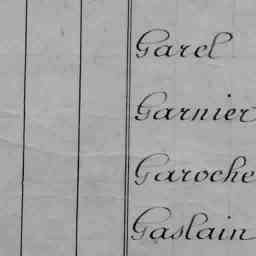 Garel
Garnier
Garoche
Gaslain